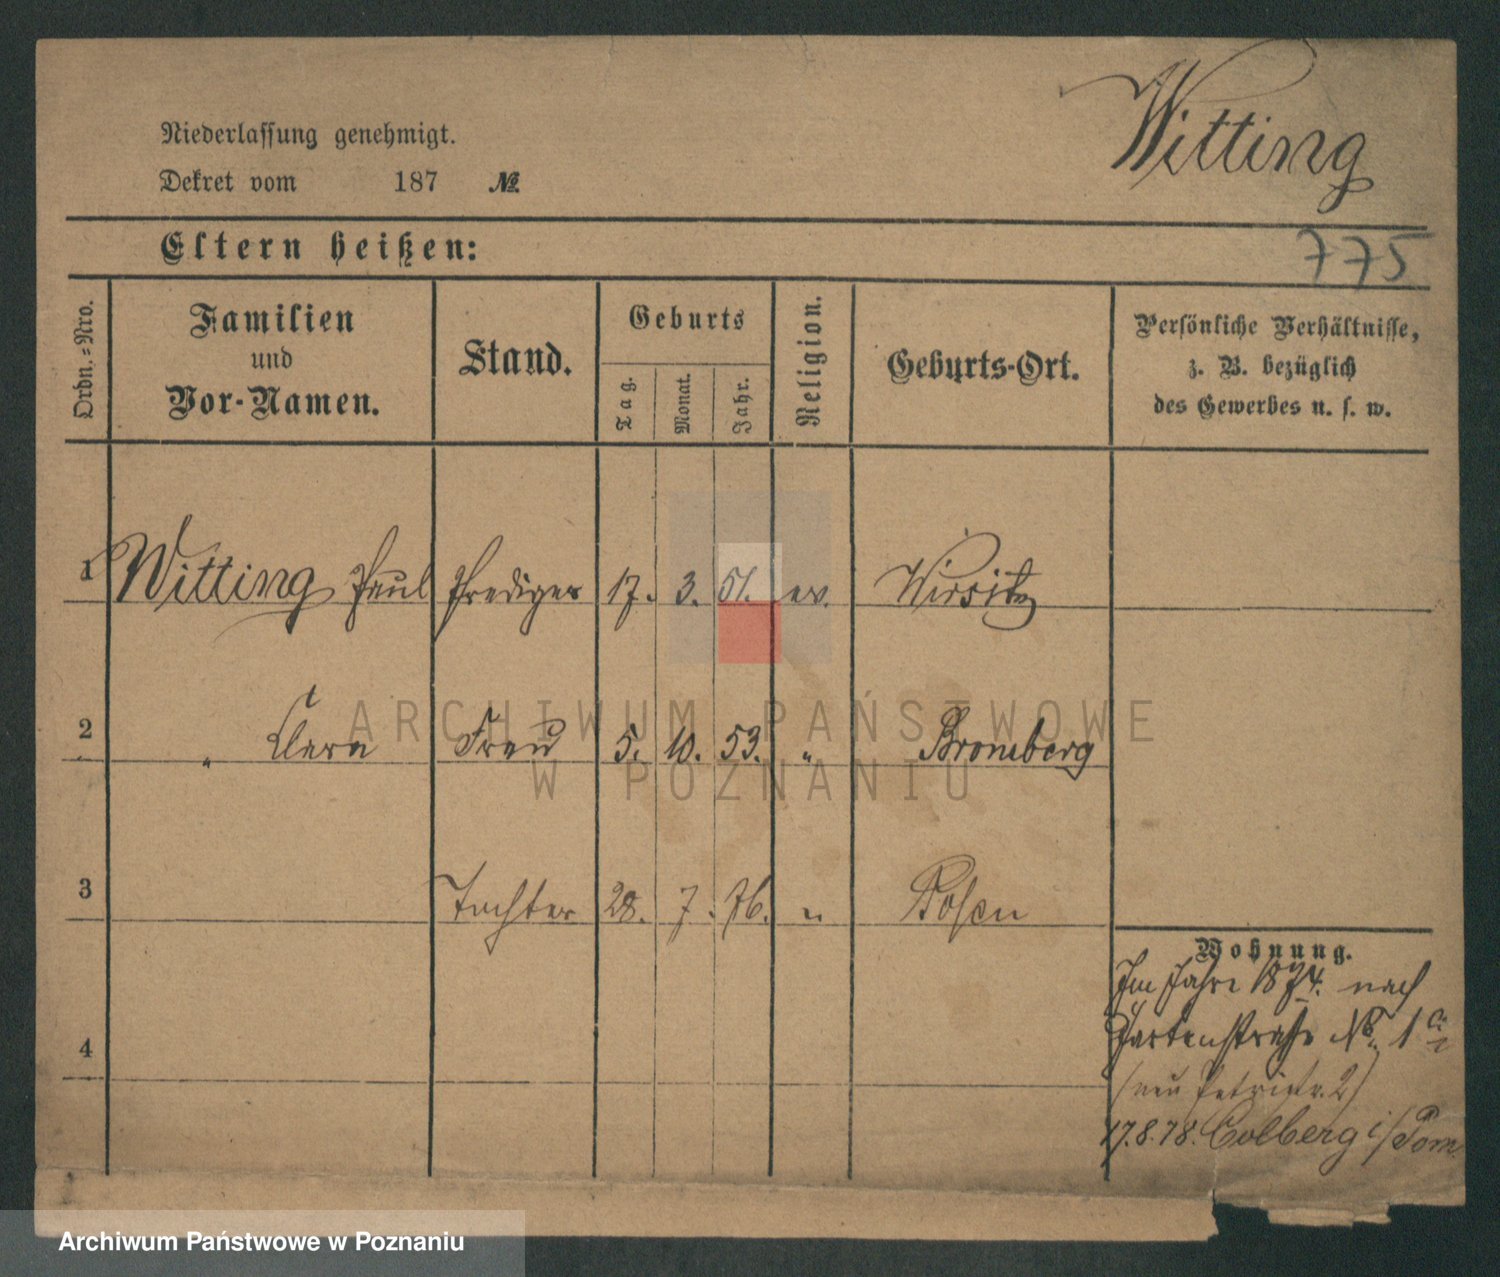 Witting
Niederlassung genehmigt.
Dekret vom 187 №
Eltern heißen:
775
Ordn.=Nro.
Familien
und
Vor-Namen.
Stand.
Geburts
Tag.
Monat.
Jahr.
Religion.
Geburts-Ort.
Persönliche Verhältnisse,
z. B. bezüglich
des Gewerbes u. s. w.
1 Witting Paul Prediger 17. 3. 51. ev. Wirsitz
2 " Clara Frau 5. 10. 53. " Bromberg
3 Tochter 28. 7. 76. " Posen
4
Wohnung.
Im Jahre 1874. nach
Gartenstraße No. 1
(neu Petristr. 2)
17.8.78. Colberg i/Pom.
ARCHIWUM PAŃSTWOWE
W POZNANIU
Archiwum Państwowe w Poznaniu